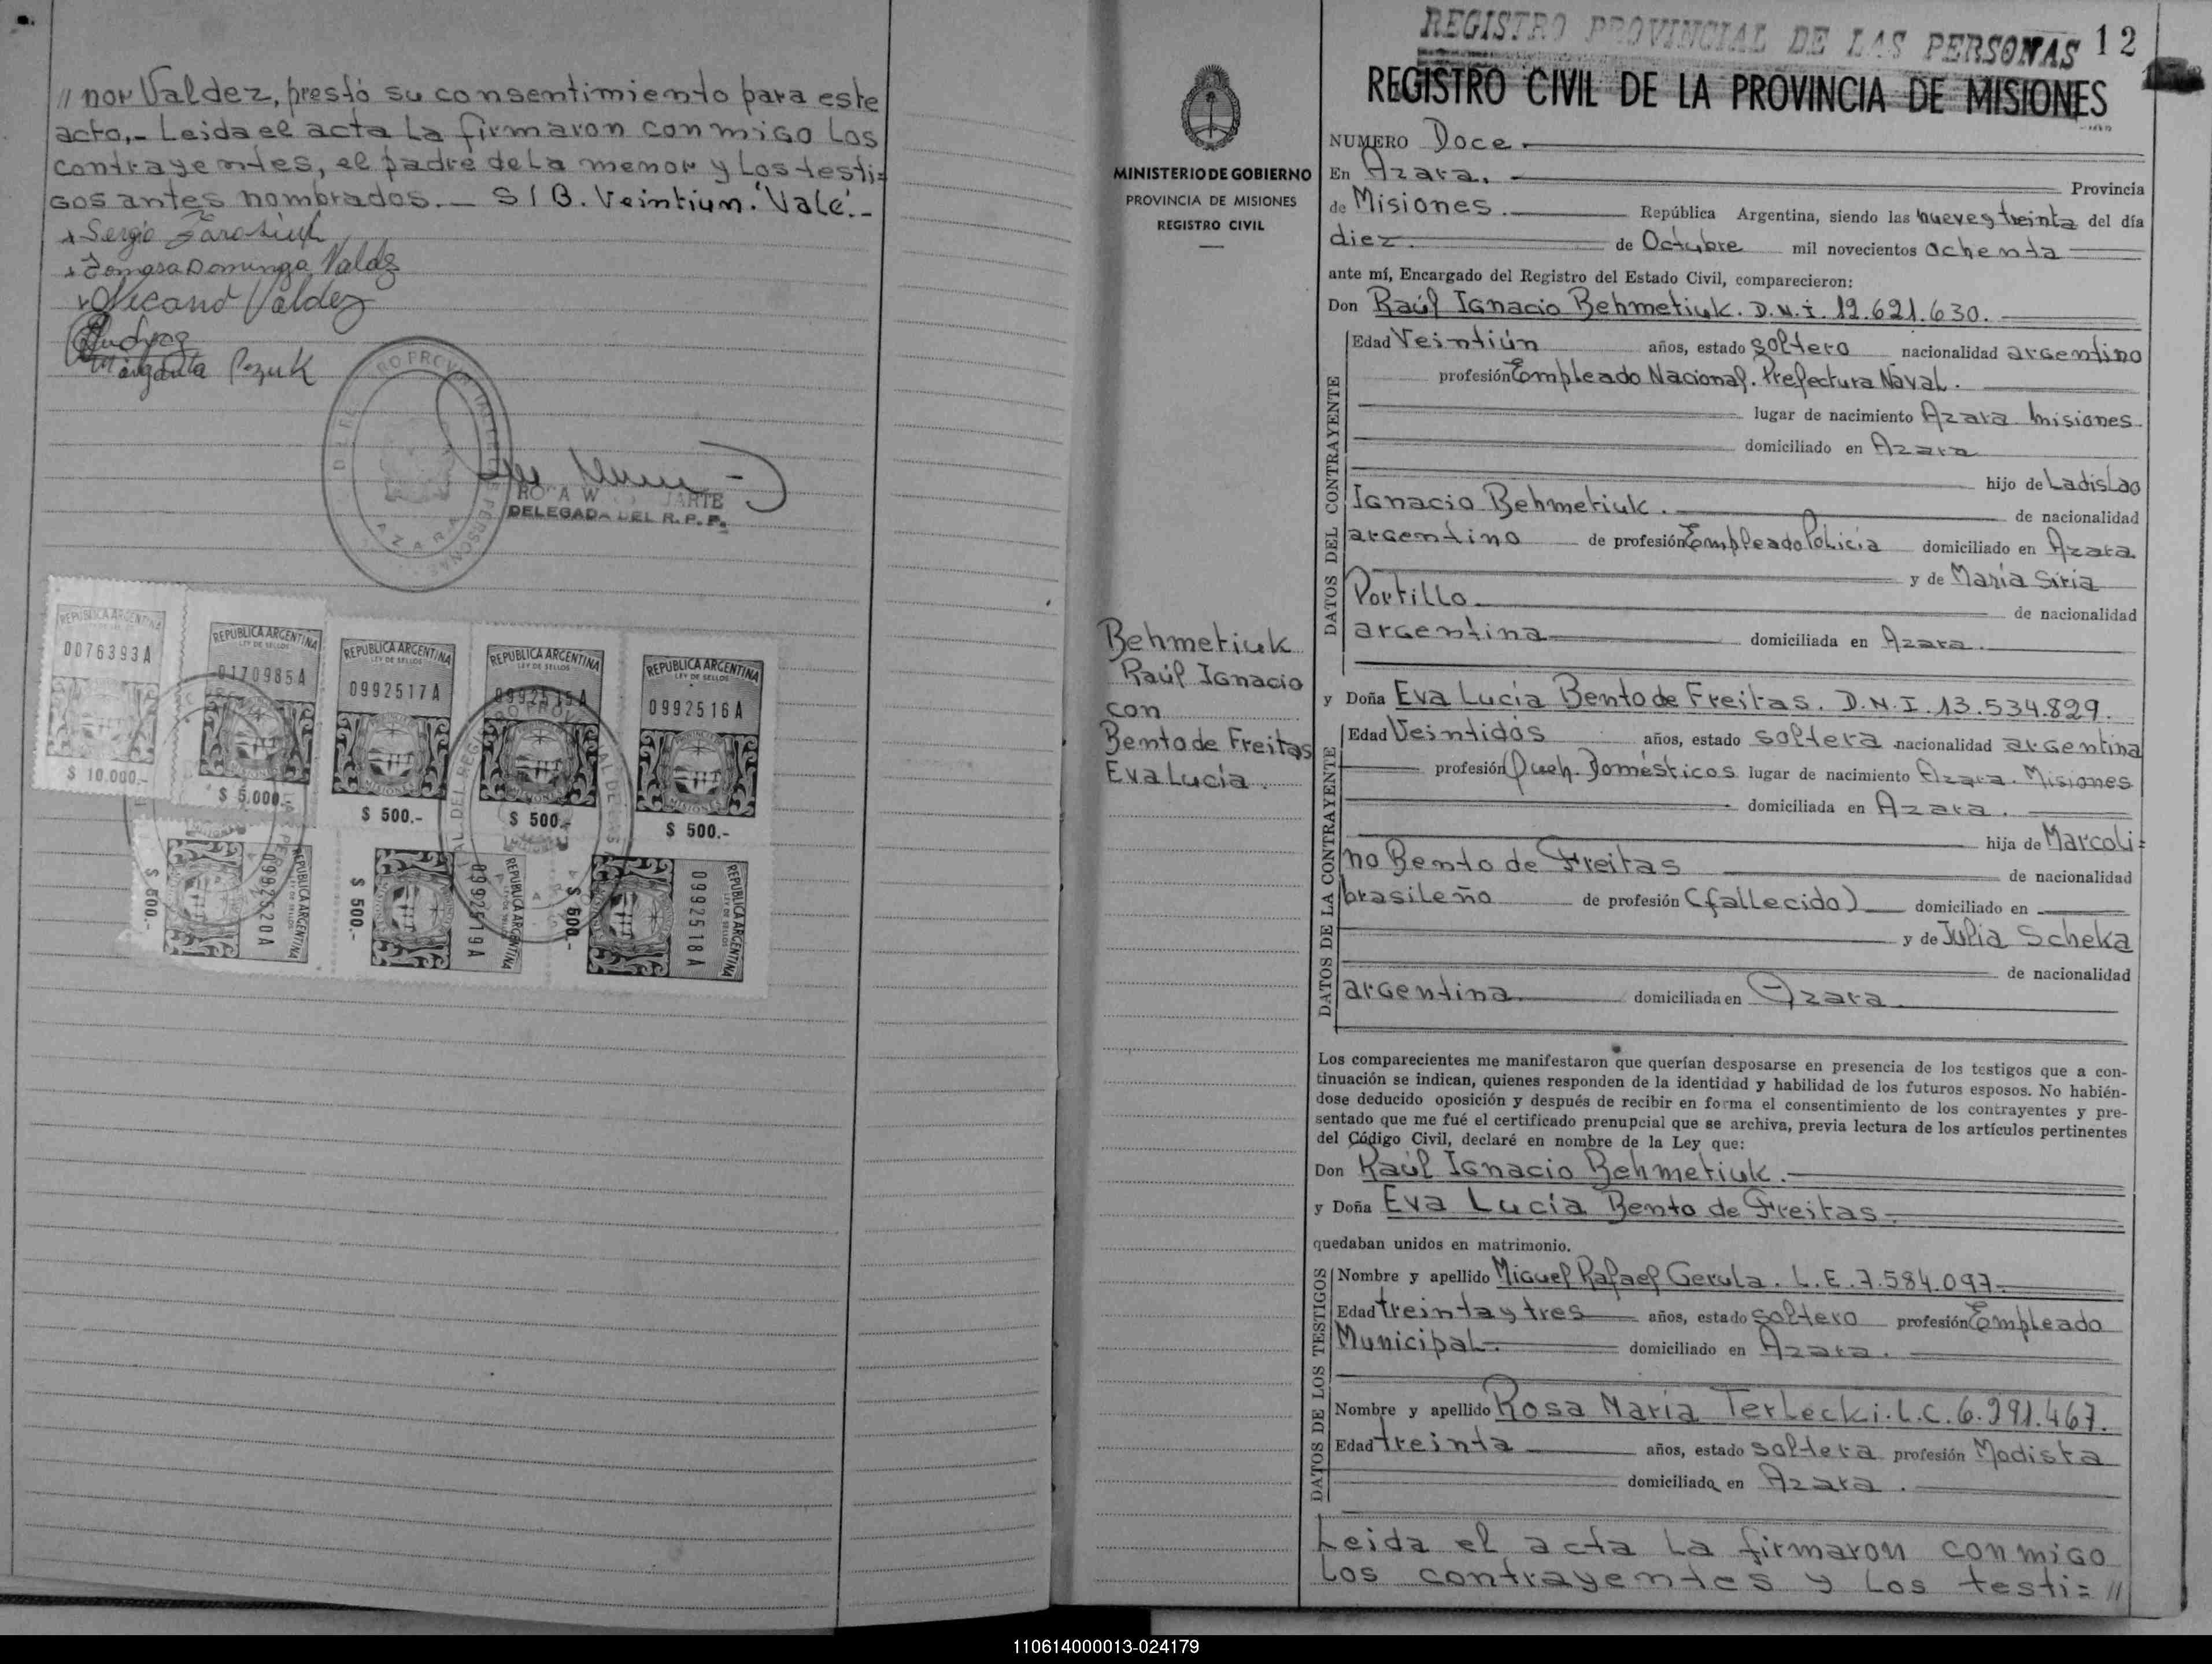 // nor Valdez, prestó su consentimiento para este
acto.- Leida el acta la firmaron conmigo los
contrayentes, el padre de la menor y los testi=
gos antes nombrados.- S/B. Veintiun. "Vale".-
Sergio
Tomasa Dominga Valdez
Valdez
Margarita Pezuk
AZARA
DELEGADA DEL R.P.P.
REPUBLICA ARGENTINA
0076393A
$ 10.000.-
REPUBLICA ARGENTINA
LEY DE SELLOS
0170985A
$ 5.000.-
REPUBLICA ARGENTINA
LEY DE SELLOS
0992517A
MISIONES
$ 500.-
REPUBLICA ARGENTINA
LEY DE SELLOS
MISIONES
$ 500.-
REPUBLICA ARGENTINA
LEY DE SELLOS
0992516A
MISIONES
$ 500.-
REPUBLICA ARGENTINA
0992520A
$ 500.-
REPUBLICA ARGENTINA
0992519A
$ 500.-
REPUBLICA ARGENTINA
LEY DE SELLOS
0992518A
$ 500.-
MINISTERIO DE GOBIERNO
PROVINCIA DE MISIONES
REGISTRO CIVIL
Behmetiuk
Raúl Ignacio
con
Bento de Freitas
Eva Lucía.
REGISTRO PROVINCIAL DE LAS PERSONAS 12
REGISTRO CIVIL DE LA PROVINCIA DE MISIONES
NUMERO Doce.
En Azara. Provincia
de Misiones. República Argentina, siendo las nueve y treinta del día
diez. de Octubre mil novecientos ochenta
ante mí, Encargado del Registro del Estado Civil, comparecieron:
Don Raúl Ignacio Behmetiuk. D.N.I. 12.621.630.
DATOS DEL CONTRAYENTE
Edad Veintiún años, estado soltero nacionalidad argentino
profesión Empleado Nacional. Prefectura Naval.
lugar de nacimiento Azara Misiones
domiciliado en Azara
hijo de Ladislao
Ignacio Behmetiuk. de nacionalidad
argentino de profesión Empleado Policia domiciliado en Azara
y de María Siria
Portillo de nacionalidad
argentina domiciliada en Azara.
y Doña Eva Lucía Bento de Freitas. D.N.I. 13.534.829.
DATOS DE LA CONTRAYENTE
Edad Veintidós años, estado soltera nacionalidad argentina
profesión Queh. Domésticos lugar de nacimiento Azara. Misiones
domiciliada en Azara.
hija de Marcoli=
no Bento de Freitas de nacionalidad
brasileño de profesión (fallecido) domiciliado en
y de Julia Scheka
de nacionalidad
argentina domiciliada en Azara
Los comparecientes me manifestaron que querían desposarse en presencia de los testigos que a con-
tinuación se indican, quienes responden de la identidad y habilidad de los futuros esposos. No habién-
dose deducido oposición y después de recibir en forma el consentimiento de los contrayentes y pre-
sentado que me fué el certificado prenupcial que se archiva, previa lectura de los artículos pertinentes
del Código Civil, declaré en nombre de la Ley que:
Don Raúl Ignacio Behmetiuk.
y Doña Eva Lucía Bento de Freitas.
quedaban unidos en matrimonio.
DATOS DE LOS TESTIGOS
Nombre y apellido Miguel Rafael Gerula. L.E. 7.584.097.
Edad treinta y tres años, estado soltero profesión Empleado
Municipal. domiciliado en Azara.
Nombre y apellido Rosa María Terlecki. L.C. 6.291.467.
Edad treinta años, estado soltera profesión Modista
domiciliado en Azara.
Leida el acta la firmaron conmigo
los contrayentes y los testi= //
110614000013-024179